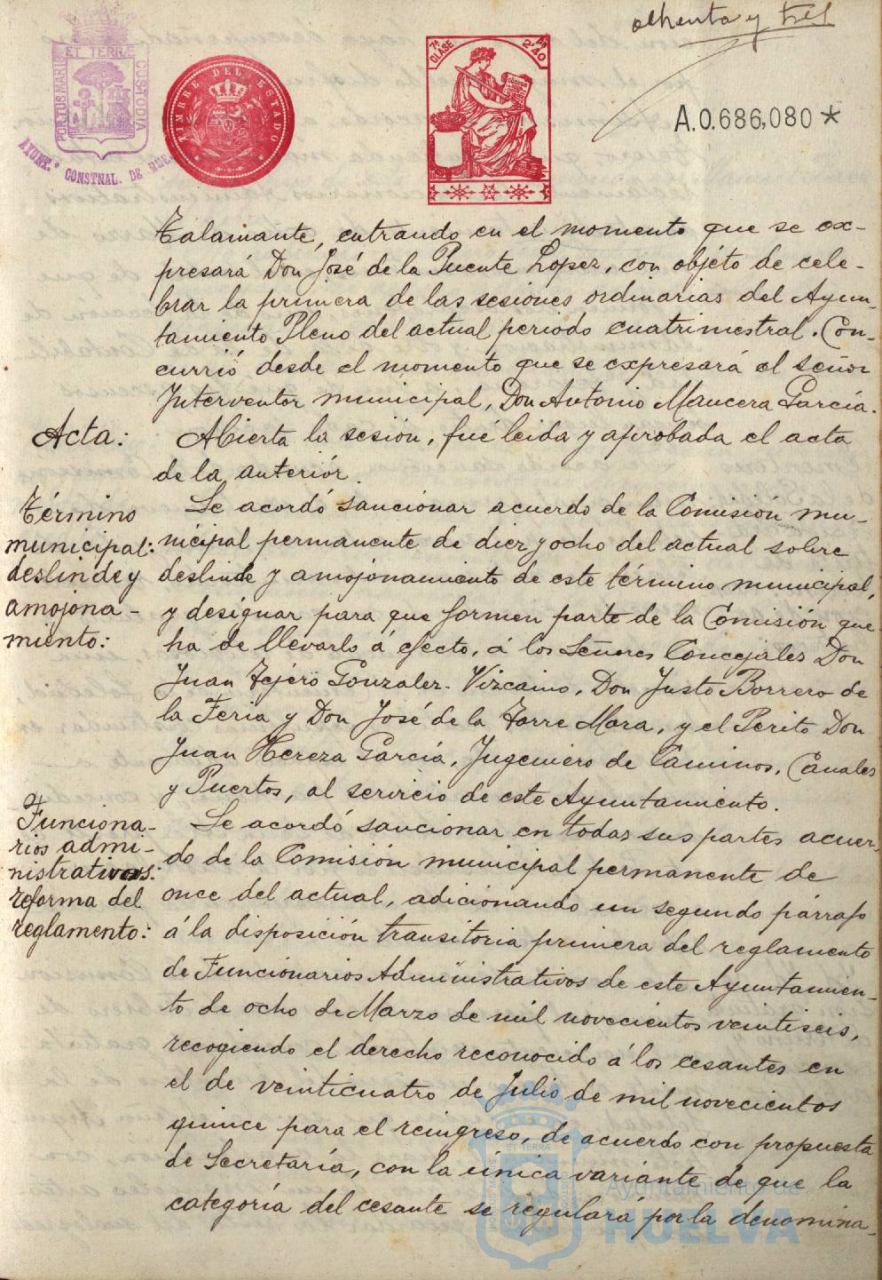 ochenta y tres
PORTUS MARIS ET TERRÆ CUSTODIA
AYUNT.º CONSTNAL. DE HUE
TIMBRE DEL ESTADO
7ª CLASE 2'40
A.0.686,080 *
Talamante, entrando en el momento que se ex-
presará Don José de la Puente Lopez, con objéto de cele-
brar la primera de las sesiones ordinarias del Ayun-
tamiento Pleno del actual periodo cuatrimestral. Con-
currió desde el momento que se expresará el señor
Interventor municipal, Don Antonio Mancera García.
Acta:
Abierta la sesión, fué leida y aprobada el acta
de la anteriór.
Término
municipal:
deslinde y
amojona-
miento:
Se acordó sancionar acuerdo de la Comisión mu-
nicipal permanente de diez y ocho del actual sobre
deslinde y amojonamiento de este término municipal,
y designar para que formen parte de la Comisión que
ha de llevarlo á efecto, á los Señores Concejales Don
Juan Tejéro Gonzalez-Vizcaino, Don Justo Borrero de
la Feria y Don José de la Torre Mora, y el Perito Don
Juan Hereza García, Ingeniero de Caminos, Canales
y Puertos, al servicio de este Ayuntamiento.
Funciona-
rios admi-
nistrativos:
reforma del
reglamento:
Se acordó sancionar en todas sus partes acuer-
do de la Comisión municipal permanente de
once del actual, adicionando un segundo párrafo
á la disposición transitoria primera del reglamento
de Funcionarios Administrativos de este Ayuntamien-
to de ocho de Marzo de mil novecientos veintiseis,
recogiendo el derecho reconocido á los cesantes en
el de veinticuatro de Julio de mil novecientos
quince para el reingreso, de acuerdo con propuesta
de Secretaría, con la única variante de que la
categoría del cesante se regulará por la denomina-
Ayuntamiento de
HUELVA